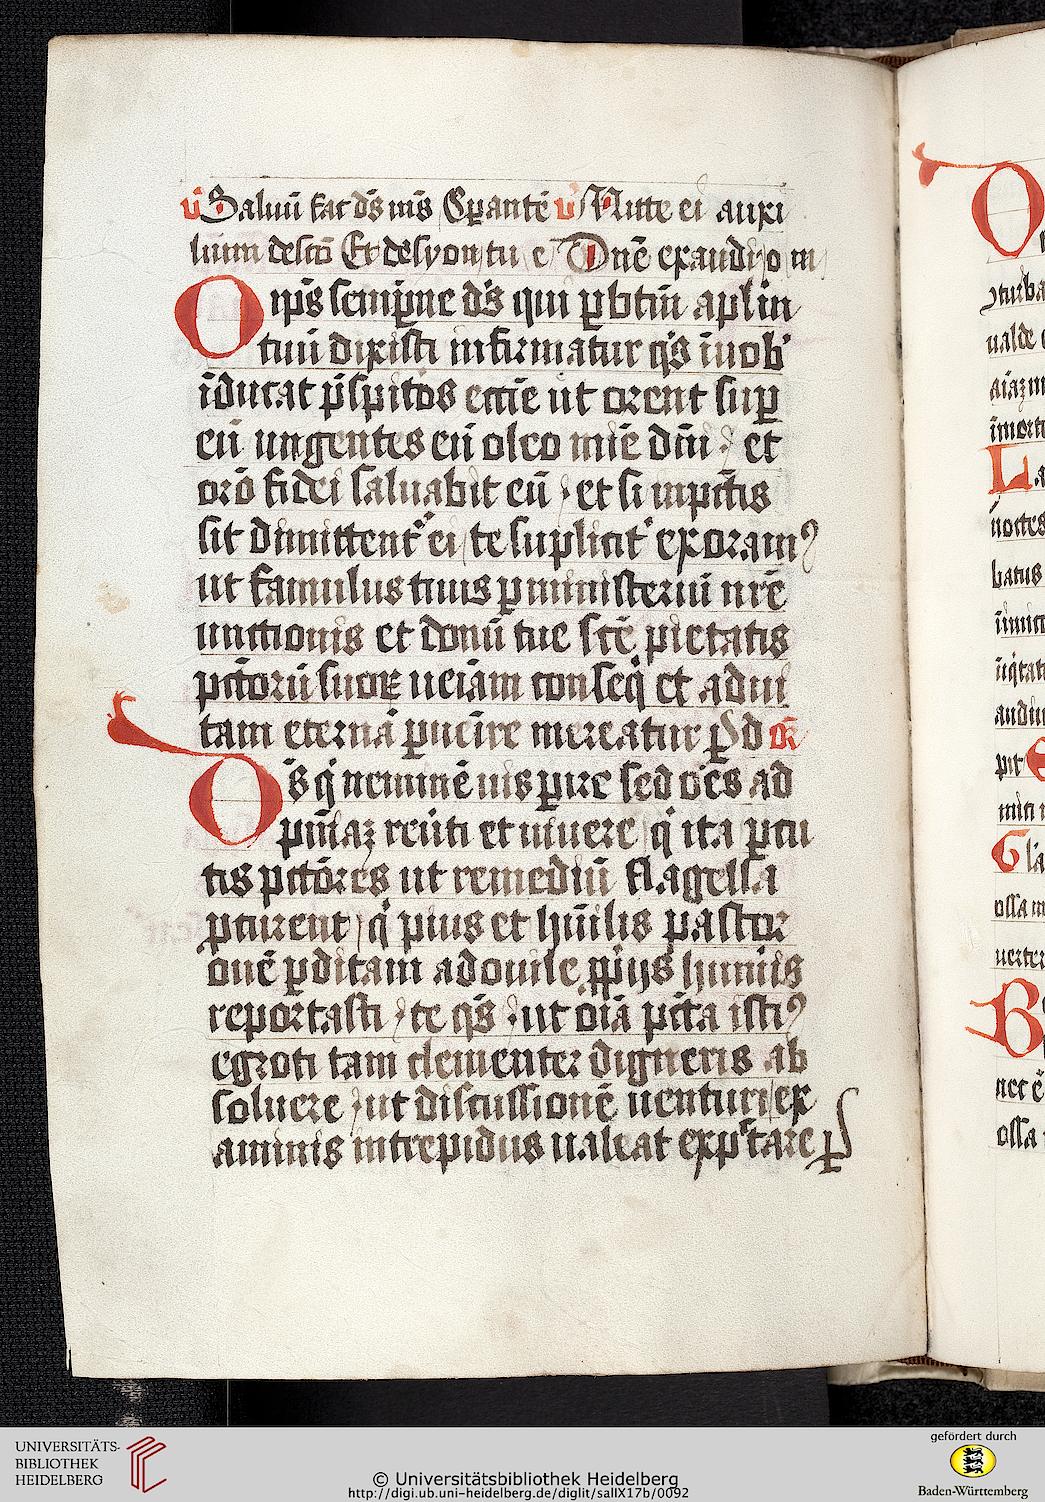 v̄ Saluū fac dēs ms̄ Sꝑantē v̄ Mitte ei auxi
lium desctō Et dēsyon tu e Dn̄e exaudi o m
Onp̄s semp̄ne ds̄ qui ꝑ btm̄ aplm̄
tuū dixisti infirmatur qs̄ ī uob'
īducat p̄sp̄itos ecc̄ie ut orent suꝑ
eū ungentes eū oleo in n̄ie dn̄i et
orō fidei saluabit eū et si inpctīs
sit dimittent' ei te suplicit' exoramꝰ
ut famulus tuus ꝑ ministeriū nrē
unctionis et donū tue scē pietatis
pctorū suoꝝ ueiam conseq̄ et ad ui
tam eternā ꝑuēire mereatur ꝑ d or̄
Ds̄ q̄ neminē uis ꝑire sed oēs ad
pn̄iaꝫ reūti et uiuere q̄ ita ꝑcu
tis pctōres ut remediū flagella
pcurent q̄ pius et hūilis pastor
ouē ꝑditam ad ouile ꝓpijs humīs
reportasti te qs̄ ut oīa pctā istiꝰ
egroti tam clementer digneris ab
soluere ut discussionē uenturi ex
aminis intrepidus ualeat expctare ꝑ
O
L
G
B
noctes
ossa
UNIVERSITÄTS-
BIBLIOTHEK
HEIDELBERG
© Universitätsbibliothek Heidelberg
http://digi.ub.uni-heidelberg.de/diglit/salIX17b/0092
gefördert durch
Baden-Württemberg